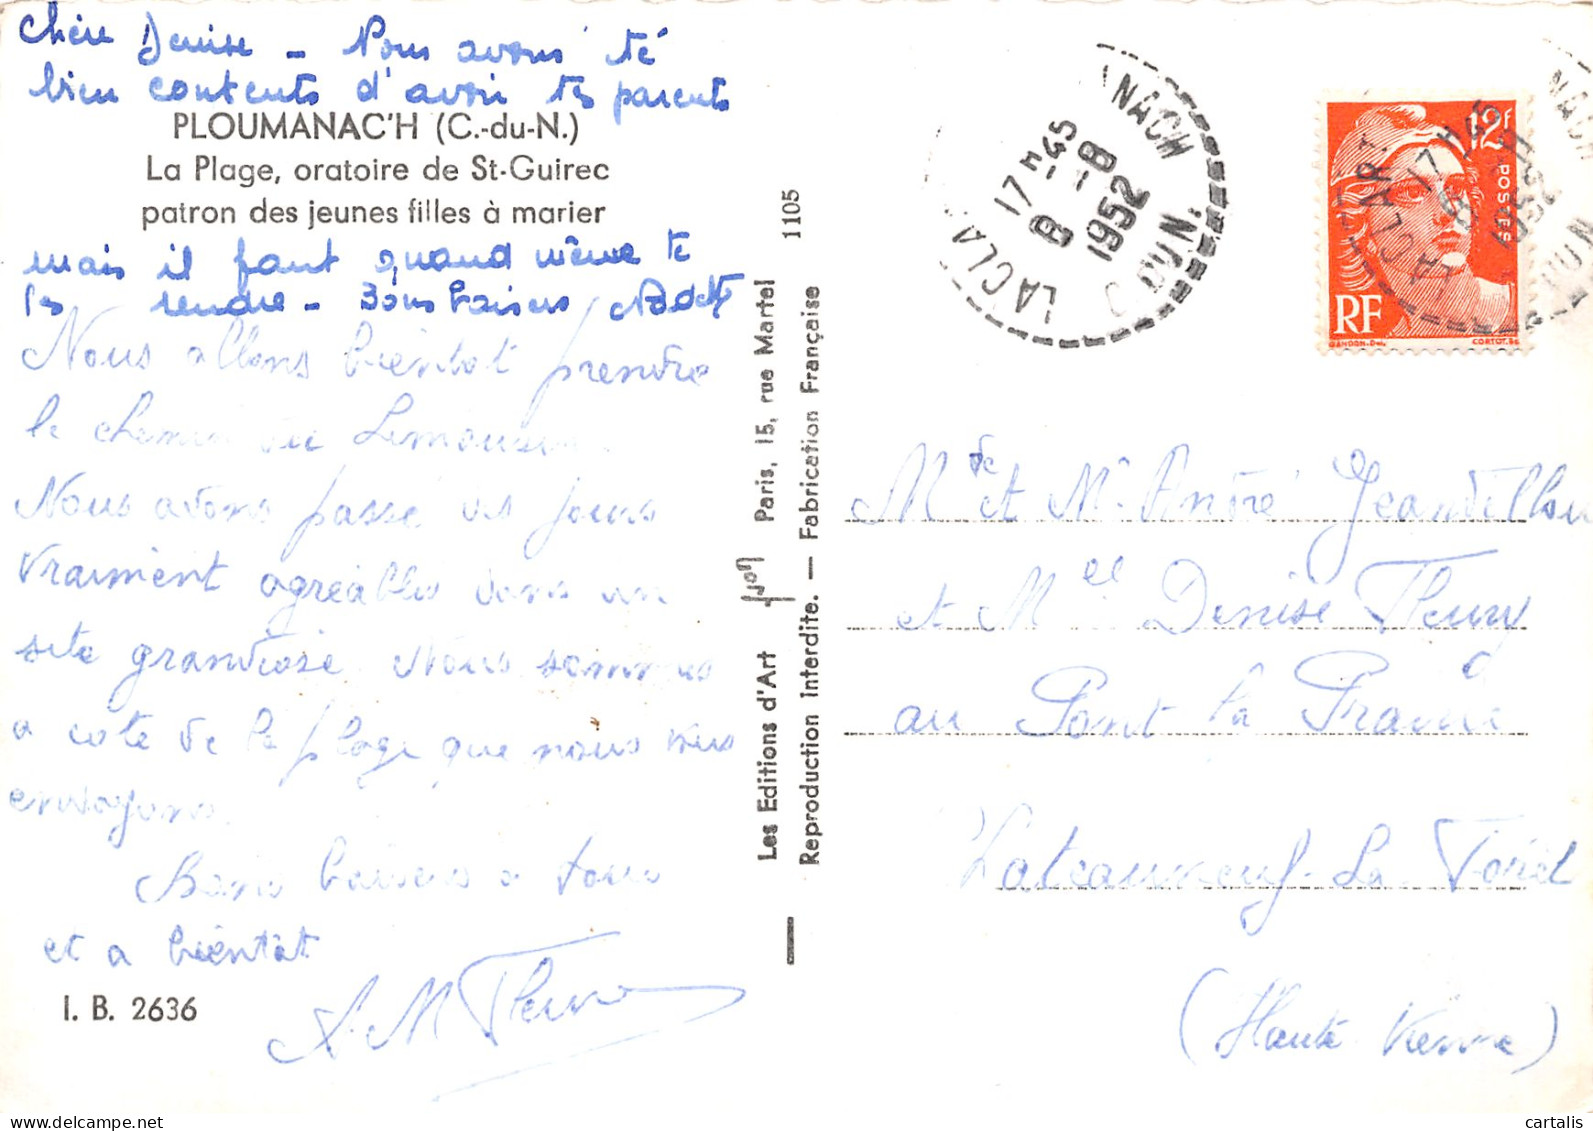 Chère Denise – Nous avons été
bien contents d'avoir tes parents
PLOUMANAC'H (C.-du-N.)
La Plage, oratoire de St-Guirec
patron des jeunes filles à marier
mais il faut quand même te
les rendre – Bons baisers
Nous allons bientot prendre
le chemin du Limousin.
Nous avons passé des jours
vraiment agréables dans un
site grandiose. Nous sommes
a coté de la plage que nous vous
envoyons.
Bons baisers a tous
et a bientôt
A. M. Fleury
I. B. 2636
Les Editions d'Art Yvon Paris, 15, rue Martel
Reproduction Interdite. — Fabrication Française
1105
LA CLA NACH
17 H 45
8 -8
1952
DU N.
12F
POSTES
RF
GANDON.Del.
CORTOT.Sc
LA CLART
17 H 45
1952
NACH
DU N
Mde et Mr André Jeandillou
et Melle Denise Fleury
au Pont la Prairie
Chateauneuf-La-Forêt
(Haute Vienne)
cartalis